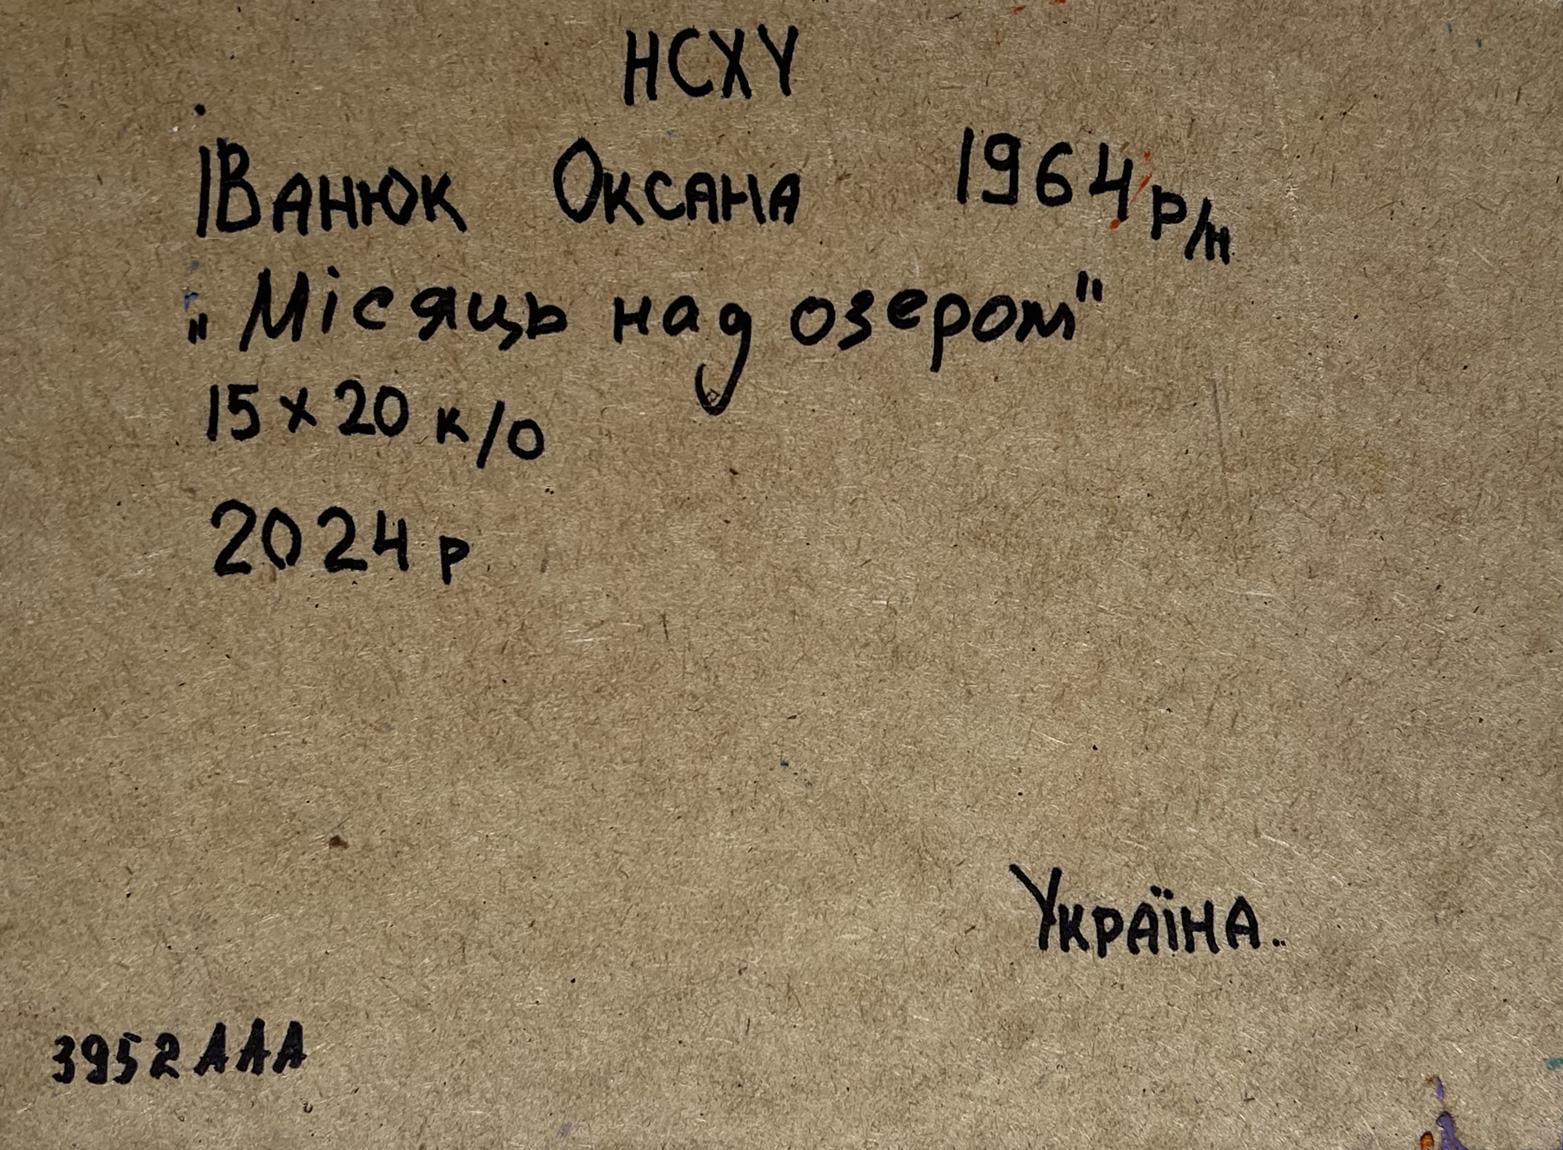 НСХУ
Іванюк Оксана 1964 р/н
„Місяць над озером"
15 х 20 к/о
2024 р
Україна..
3952 ААА